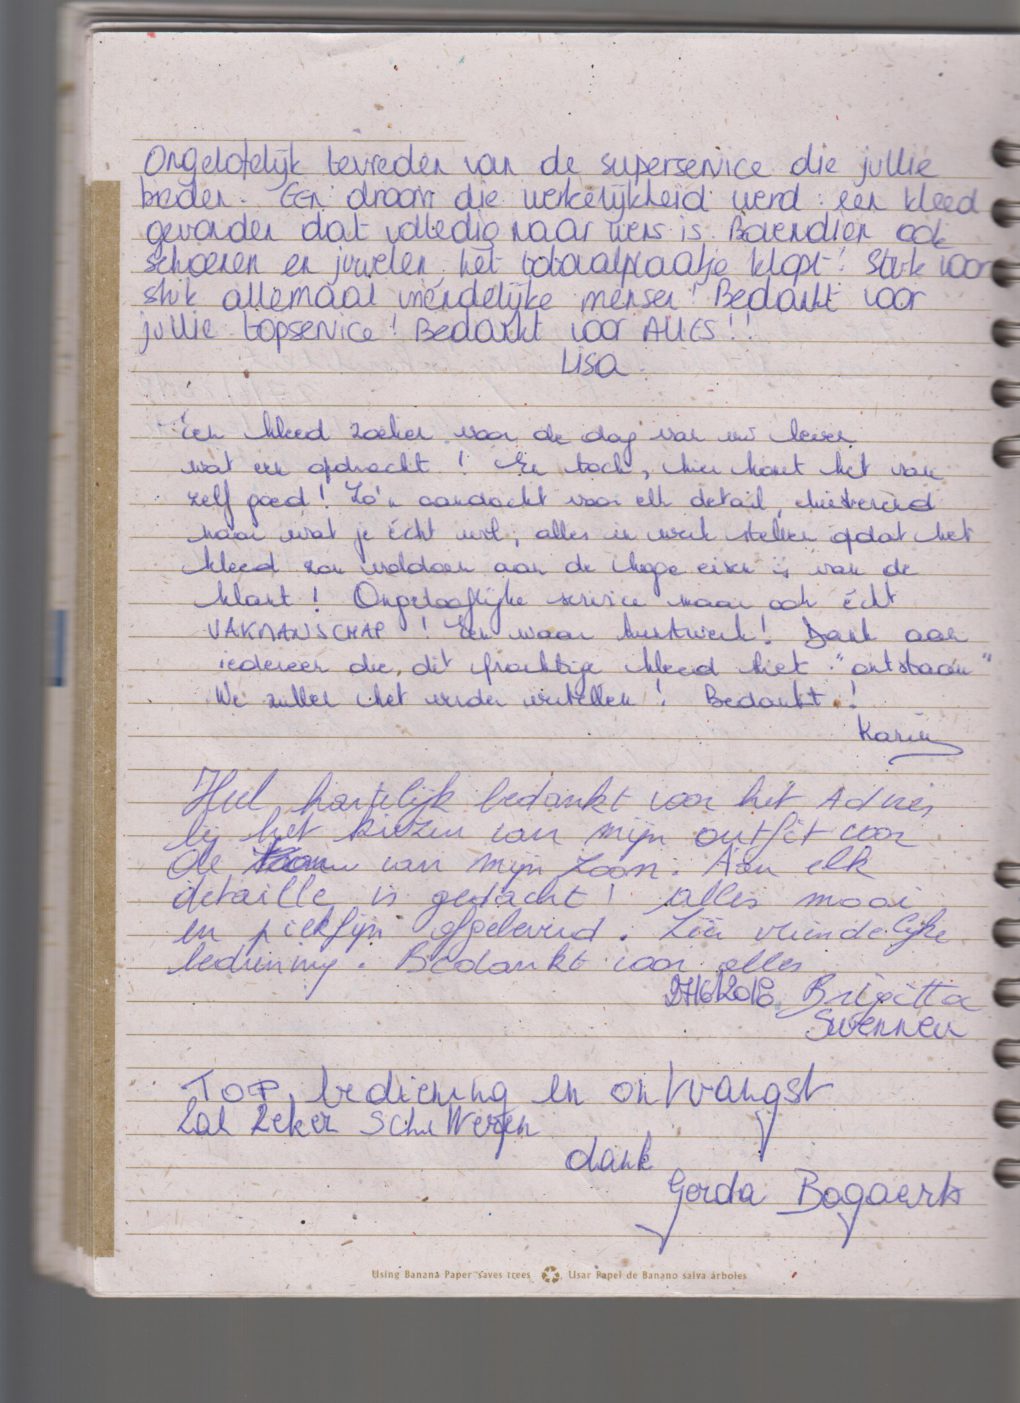 Ongelofelijk tevreden van de superservice die jullie
bieden. Een droom die werkelijkheid werd: een kleed
gevonden dat volledig naar wens is. Bovendien ook
schoenen en juwelen, het totaalplaatje klopt! Stuk voor
stuk allemaal vriendelijke mensen! Bedankt voor
jullie topservice! Bedankt voor ALLES!!
Lisa.
Een kleed zoeken voor de dag van uw leven
wat een opdracht! En toch, hier komt het van
zelf goed! Zo'n aandacht voor elk detail, luisterend
naar wat je écht wil, alles in werk stellen opdat het
kleed zou voldoen aan de hoge eisen van de
klant! Ongelooflijke service maar ook écht
VAKMANSCHAP! Een waar kunstwerk! Dank aan
iedereen die dit prachtige kleed liet "ontstaan"
We zullen het verder vertellen! Bedankt!
Karin
Heel hartelijk bedankt voor het Advies
bij het kiezen van mijn outfit voor
de van mijn zoon. Aan elk
detaille is gedacht! alles mooi
en piekfijn afgeleverd. Zéér vriendelijke
bediening. Bedankt voor alles
27/6/2018 Brigitta
Swennen
TOP bediening en ontvangst
Zal zeker
dank
Gerda Bogaerts
Using Banana Paper saves trees Usar Papel de Banano salva árboles